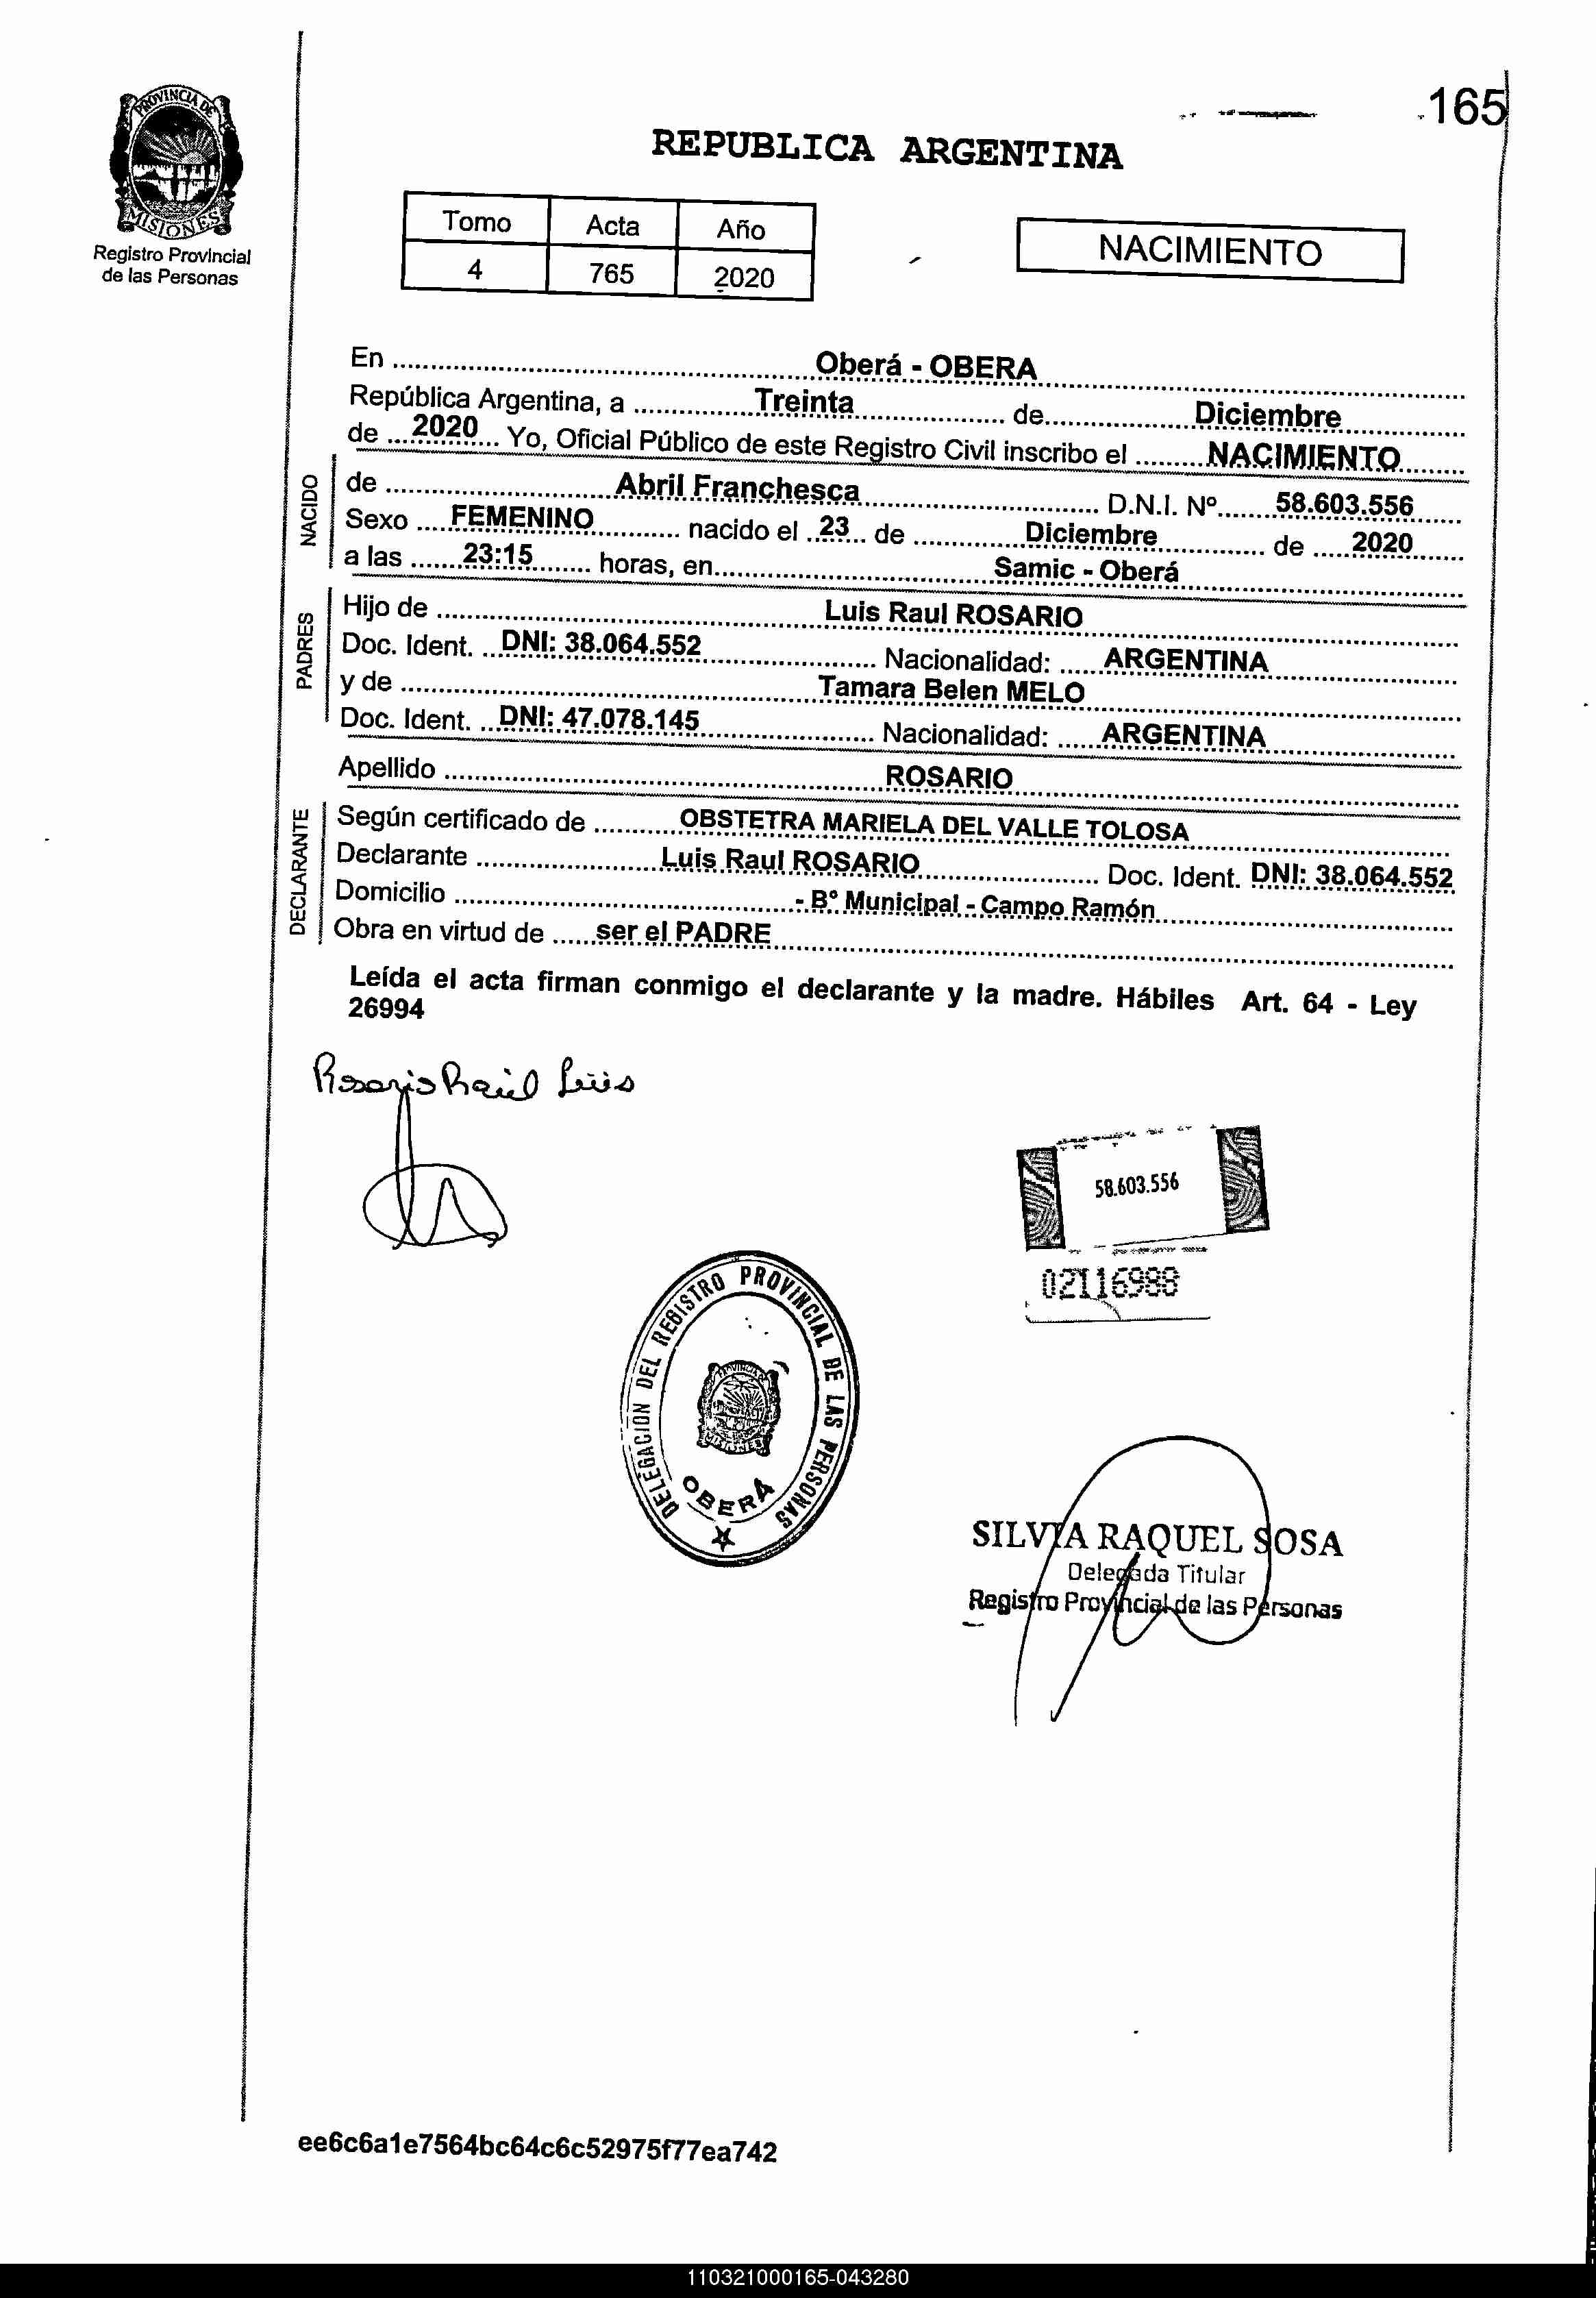 165
PROVINCIA DE
MISIONES
Registro Provincial
de las Personas
REPUBLICA ARGENTINA
Tomo Acta Año
4 765 2020
NACIMIENTO
En Oberá - OBERA
República Argentina, a Treinta de Diciembre
de 2020 Yo, Oficial Público de este Registro Civil inscribo el NACIMIENTO
NACIDO
de Abril Franchesca D.N.I. Nº 58.603.556
Sexo FEMENINO nacido el 23 de Diciembre de 2020
a las 23:15 horas, en Samic - Oberá
PADRES
Hijo de Luis Raul ROSARIO
Doc. Ident. DNI: 38.064.552 Nacionalidad: ARGENTINA
y de Tamara Belen MELO
Doc. Ident. DNI: 47.078.145 Nacionalidad: ARGENTINA
Apellido ROSARIO
DECLARANTE
Según certificado de OBSTETRA MARIELA DEL VALLE TOLOSA
Declarante Luis Raul ROSARIO Doc. Ident. DNI: 38.064.552
Domicilio - Bº Municipal - Campo Ramón
Obra en virtud de ser el PADRE
Leída el acta firman conmigo el declarante y la madre. Hábiles Art. 64 - Ley
26994
Rosario Raúl Luis
58.603.556
02116988
DELEGACION DEL REGISTRO PROVINCIAL DE LAS PERSONAS
PROVINCIA
MISIONES
OBERÁ
SILVIA RAQUEL SOSA
Delegada Titular
Registro Provincial de las Personas
ee6c6a1e7564bc64c6c52975f77ea742
110321000165-043280